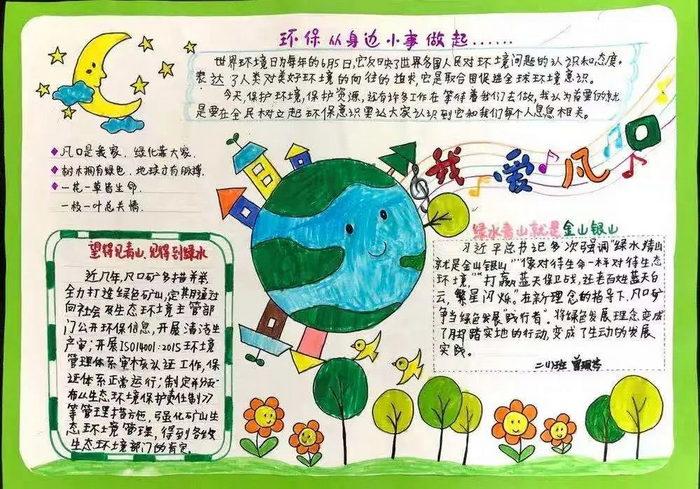 环保从身边小事做起……
世界环境日为每年的6月5日,它反映了世界各国人民对环境问题的认识和态度,
表达了人类对美好环境的向往的追求,它是联合国促进全球环境意识。
今天,保护环境,保护资源,还有许多工作在等待着我们去做,我认为首要的就
是要在全民树立起环保意识要让大家认识到它和我们每个人息息相关。
风口是我家,绿化靠大家.
树木拥有绿色,地球才有脉搏
一花一草皆生命,
一枝一叶总关情.
我爱风口
望得见青山,见得到绿水
近几年,风口矿多措并举,
全力打造绿色矿山,定期通过
向社会及生态环境主管部
门公开环保信息,开展清洁生
产审;开展ISO14001:2015环境
管理体系审核认证工作,保
证体系正常运行;制定并分
布《生态环境保护责任制》
等管理措施,可强化矿山生
态环境管理,得到各级
生态环境部门的肯定.
绿水青山就是金山银山
习近平总书记多次强调“绿水青山
就是金山银山”“像对待生命一样对待生态
环境,”“打赢蓝天保卫战,还老百姓蓝天白
云,繁星闪烁。”在新理念的指导下,风口矿
争当绿色发展“践行者”,将绿色发展理念变成
了脚踏实地的行动,变成了生动的发展
实践。
二(1)班 曾